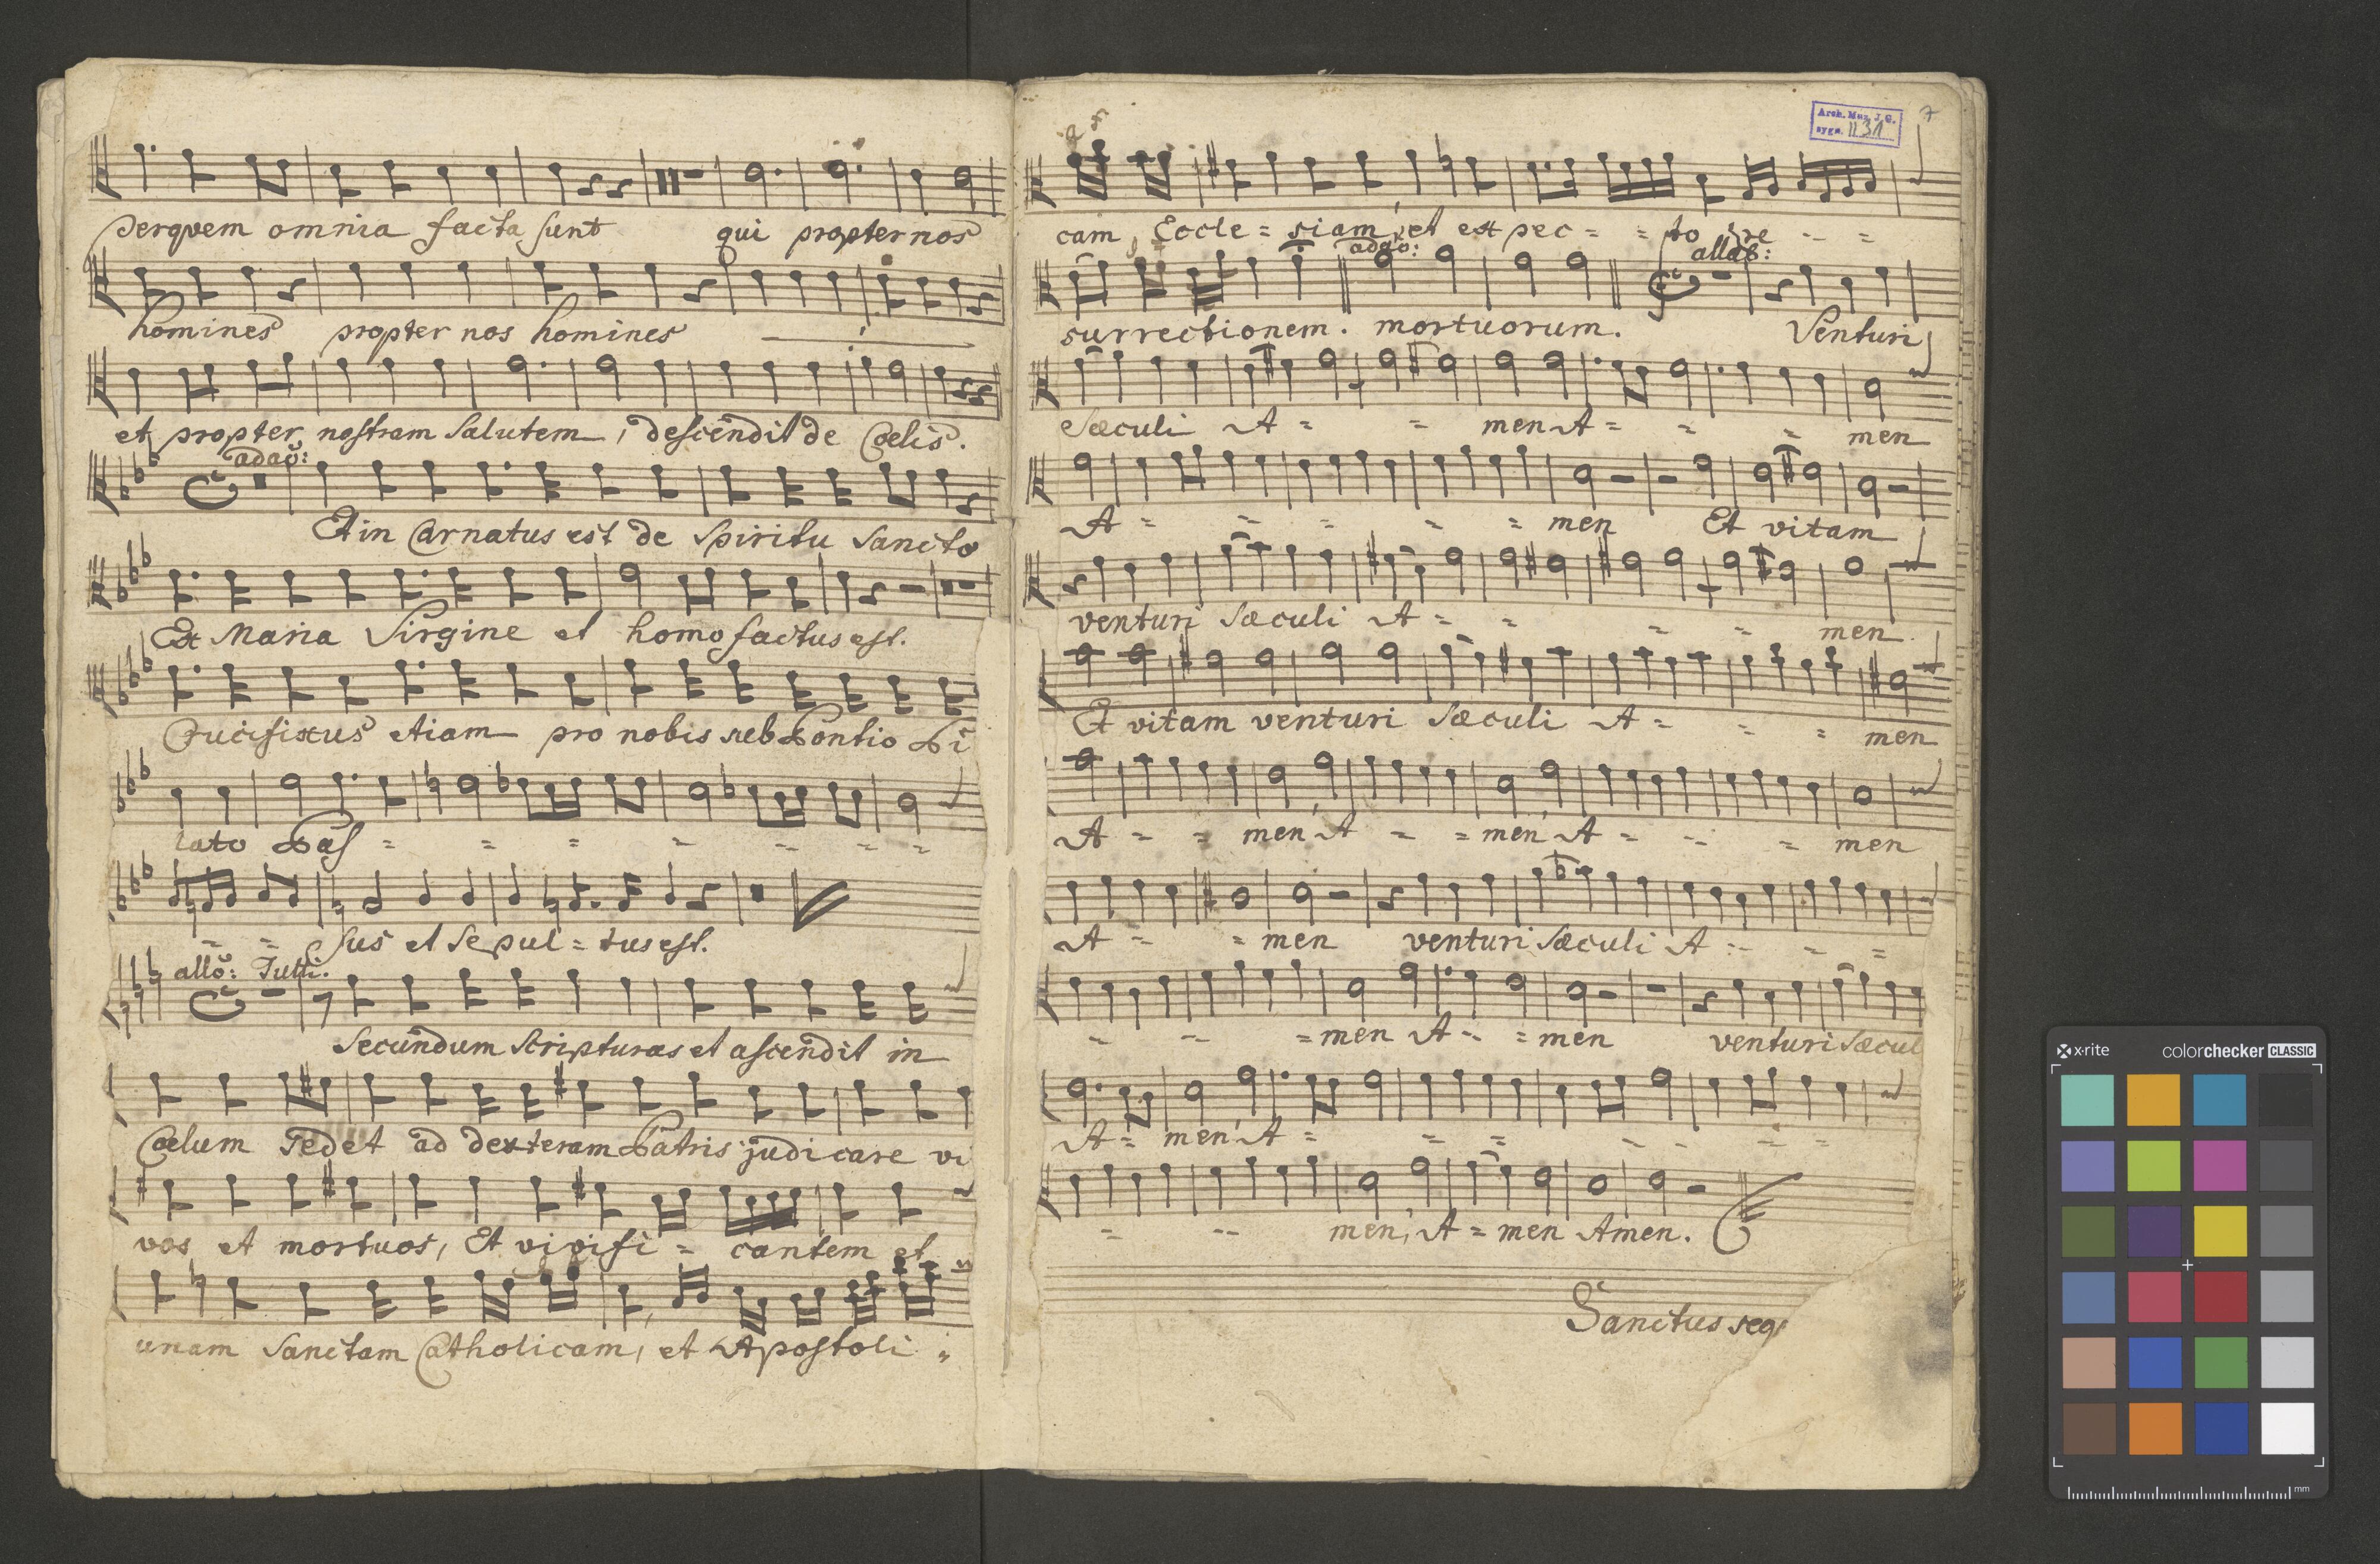 perquem omnia facta sunt qui propter nos
homines propter nos homines
et propter nostram Salutem, descendit de Coelis.
adaō:
Et in Carnatus est de Spiritu Sancto
Ex Maria Virgine et homo factus est.
Crucifixus etiam pro nobis sub Pontio Pi
lato Pas = = = = = = =
= = sus et Sepul = tus est.
allō: Tutti.
Secundum Scripturas et ascendit in
Coelum Sedet ad dexteram Patris judicare vi
vos et mortuos, Et vivifi = cantem et
unam Sanctam Catholicam, et Apostoli =
Arch. Muz. J. G.
sygn. II 31
7
cam, Eccle = siam, et expec = = to re - - =
adaō: allō:
surrectionem. mortuorum. Venturi
Sæculi A = = men A = = = men
A = = = = = men Et vitam
venturi Sæculi A = = = = men.
Et vitam venturi Sæculi A = = = men
A = = men, A = = men, A = = = men
A = = men venturi Sæculi A = = =
= = = men A = = men venturi Sæcul
A = men, A = = = = = = =
= = men, A = men Amen.
Sanctus seq
x·rite colorchecker CLASSIC
mm